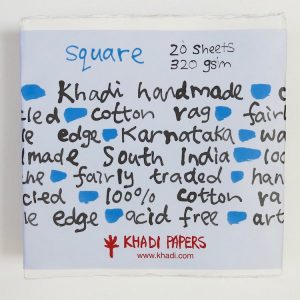 square 20 sheets
320 gsm
Khadi handmade
cotton rag
edge Karnataka
made South India 100
fairly traded
100% cotton rag
edge acid free art
KHADI PAPERS
www.khadi.com